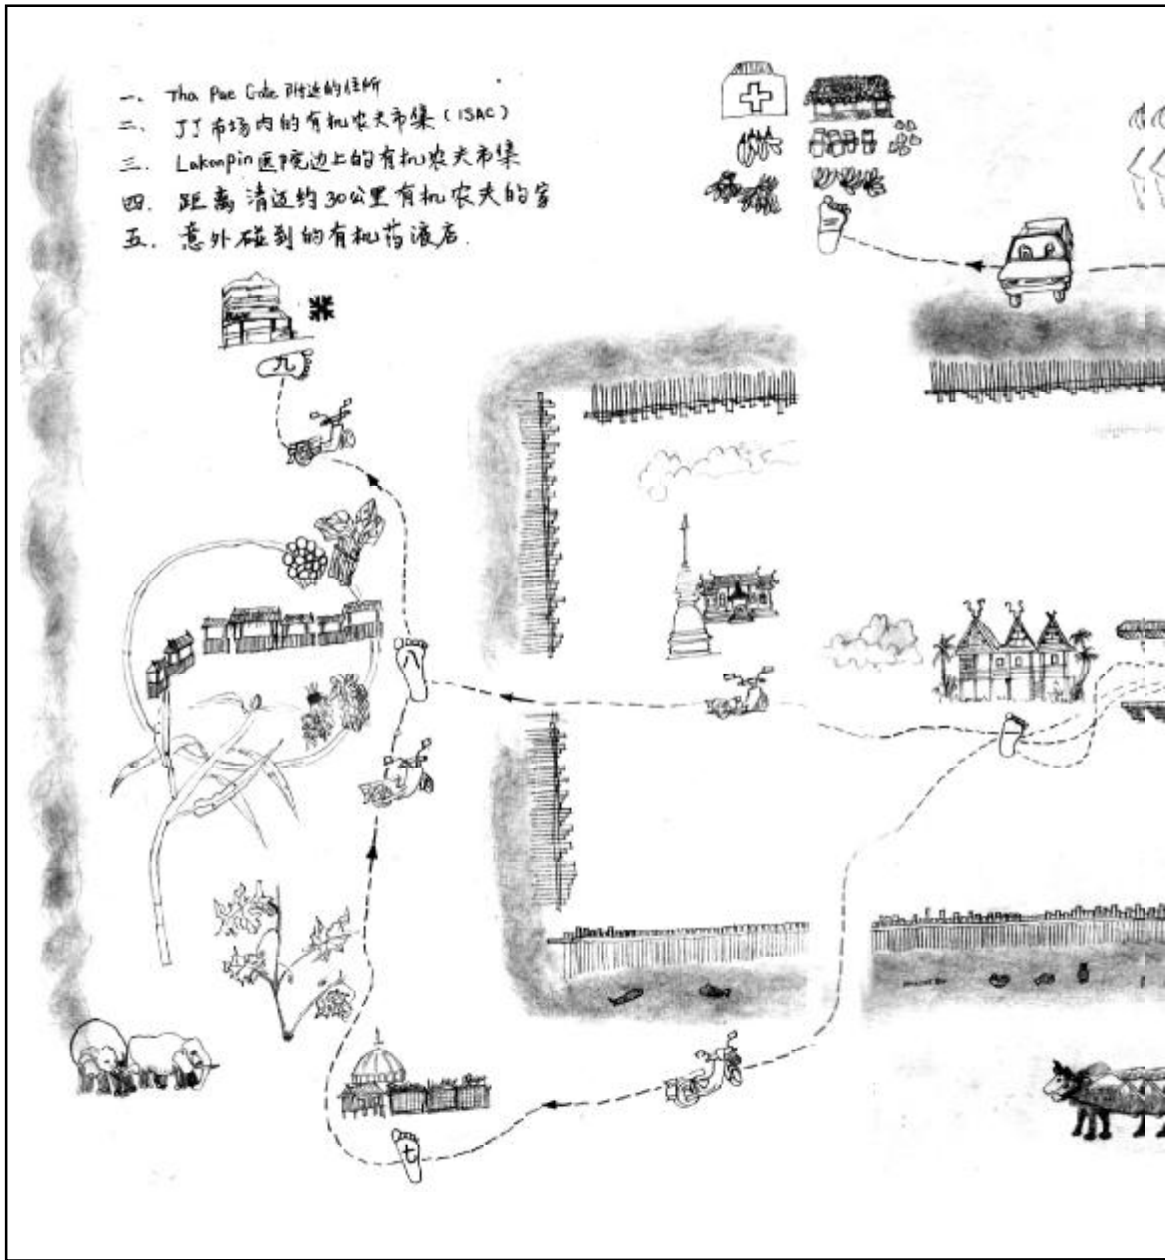 一、Tha Pae Gate 附近的住所
二、JJ市场内的有机农夫市集(ISAC)
三、Lakonpin医院边上的有机农夫市集
四、距离清迈约30公里有机农夫的家
五、意外碰到的有机药液店.
三
九
八
一
七